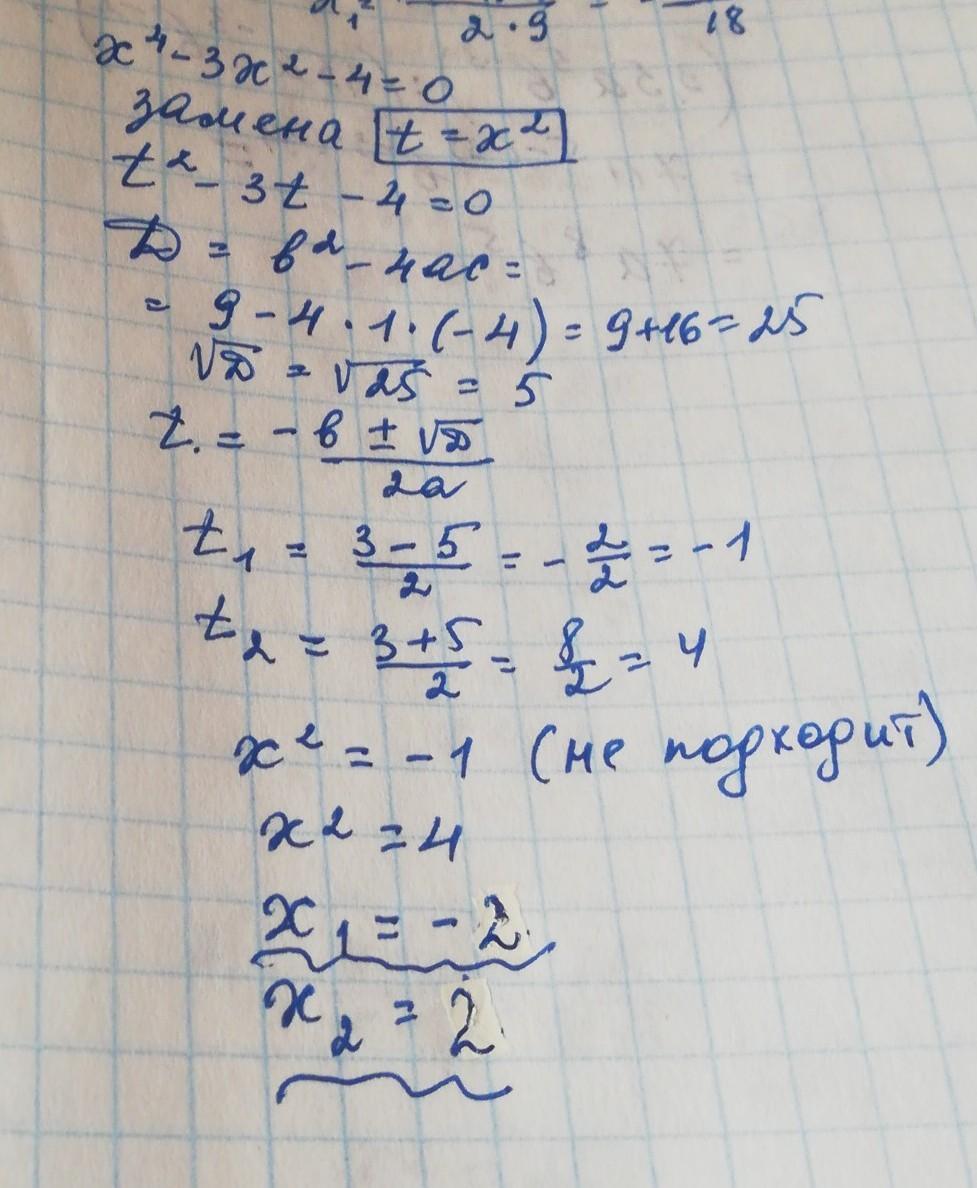 x₁ = / 2·9 = / 18
x⁴ - 3x² - 4 = 0
замена t = x²
t² - 3t - 4 = 0
D = b² - 4ac =
= 9 - 4 · 1 · (-4) = 9+16 = 25
√D = √25 = 5
t. = -b ± √D / 2a
t₁ = 3 - 5 / 2 = - 2/2 = -1
t₂ = 3+5 / 2 = 8/2 = 4
x² = -1 (не подходит)
x² = 4
x₁ = -2
x₂ = 2